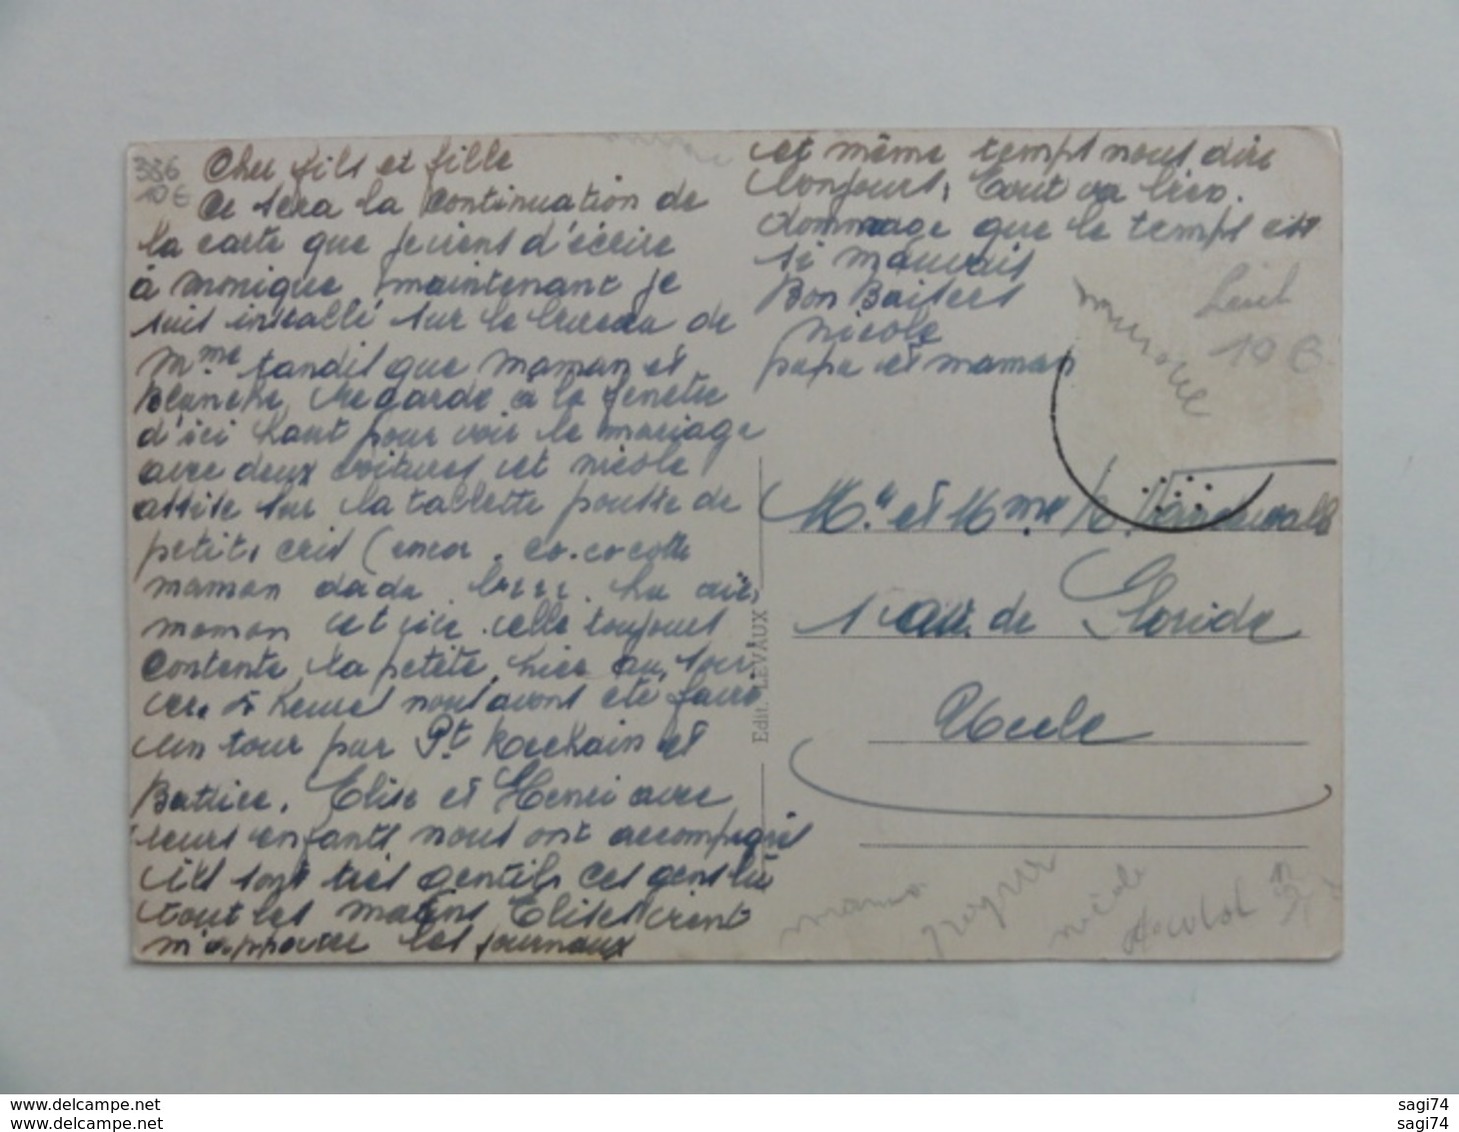 386
10 €
Cher fils et fille
Ce sera la continuation de
la carte que je viens d'écrire
à monique maintenant je
suis installé sur le bureau de
Mme tandis que maman et
Blanche regarde a la fenetre
d'ici haut pour voir le mariage
avec deux voitures et nicole
assise sur la tablette pousse de
petits cris co.cocotte
maman dada brrr.
maman et toujours
contente la petite, hier au soir
vers 5 heures nous avons été faire
un tour par Pt Rechain et
Battice. Elise et Henri avec
leurs enfants nous ont accompagnés
ils sont très gentils ces gens là
tout les matins Elise vient
m'apporter les journaux
et même temps nous dire
bonjours, tout va bien.
dommage que le temps est
si mauvais
Bon Baisers
nicole
papa et maman
10 €
Mr et Mme
1 av. de Floride
Uccle
Edit. LEVAUX
maman
nicole
www.delcampe.net
www.delcampe.net
sagi74
sagi74